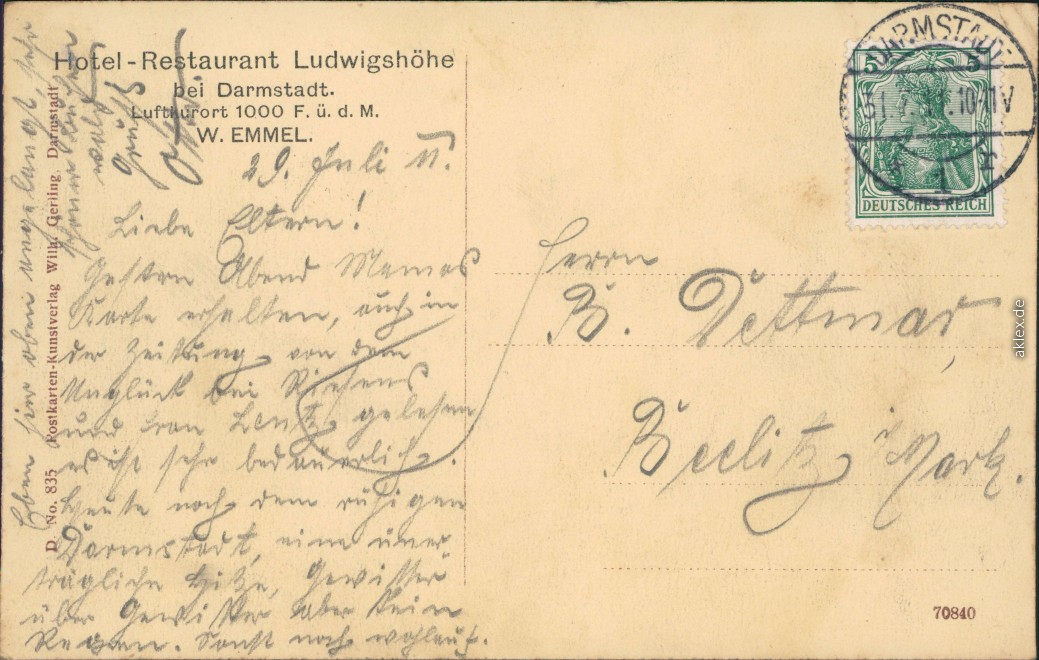 Hotel-Restaurant Ludwigshöhe
bei Darmstadt.
Luftkurort 1000 F. ü. d. M.
W. EMMEL.
29. Juli 11.
Liebe Eltern!
Gestern Abend Mamas
Karte erhalten, auch in
der Zeitung von dem
Unglück bei
und Frau Lentz gelesen
es ist sehr bedauerlich.
Heute nach dem ruhigen
Darmstadt, eine uner
trägliche Hitze, Gewitter
über Gewitter aber kein
Regen. Sonst noch wohlauf.
Eben hier oben angelangt, sehr
schöner
Wald
Gruß
D. No. 835 Postkarten-Kunstverlag Wilh. Gerling, Darmstadt
DARMSTADT
10-11V
1
5 5
DEUTSCHES REICH
Herrn
B. Dettmar
Beelitz i/Mark.
70840
aklex.de